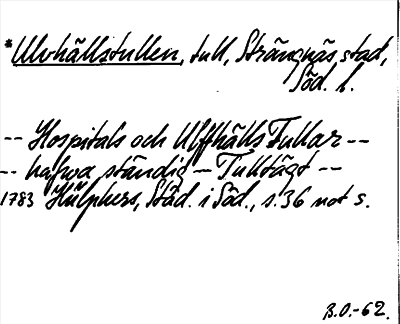 *Ulvhällstullen, tull, Strängnäs stad,
Söd. l.
-- Hospitals och Ulfhälls Tullar --
-- hafwa ständig – Tulltägt --
1783 Hülphers, Städ. i Söd., s. 36 not s.
B.O.-62.